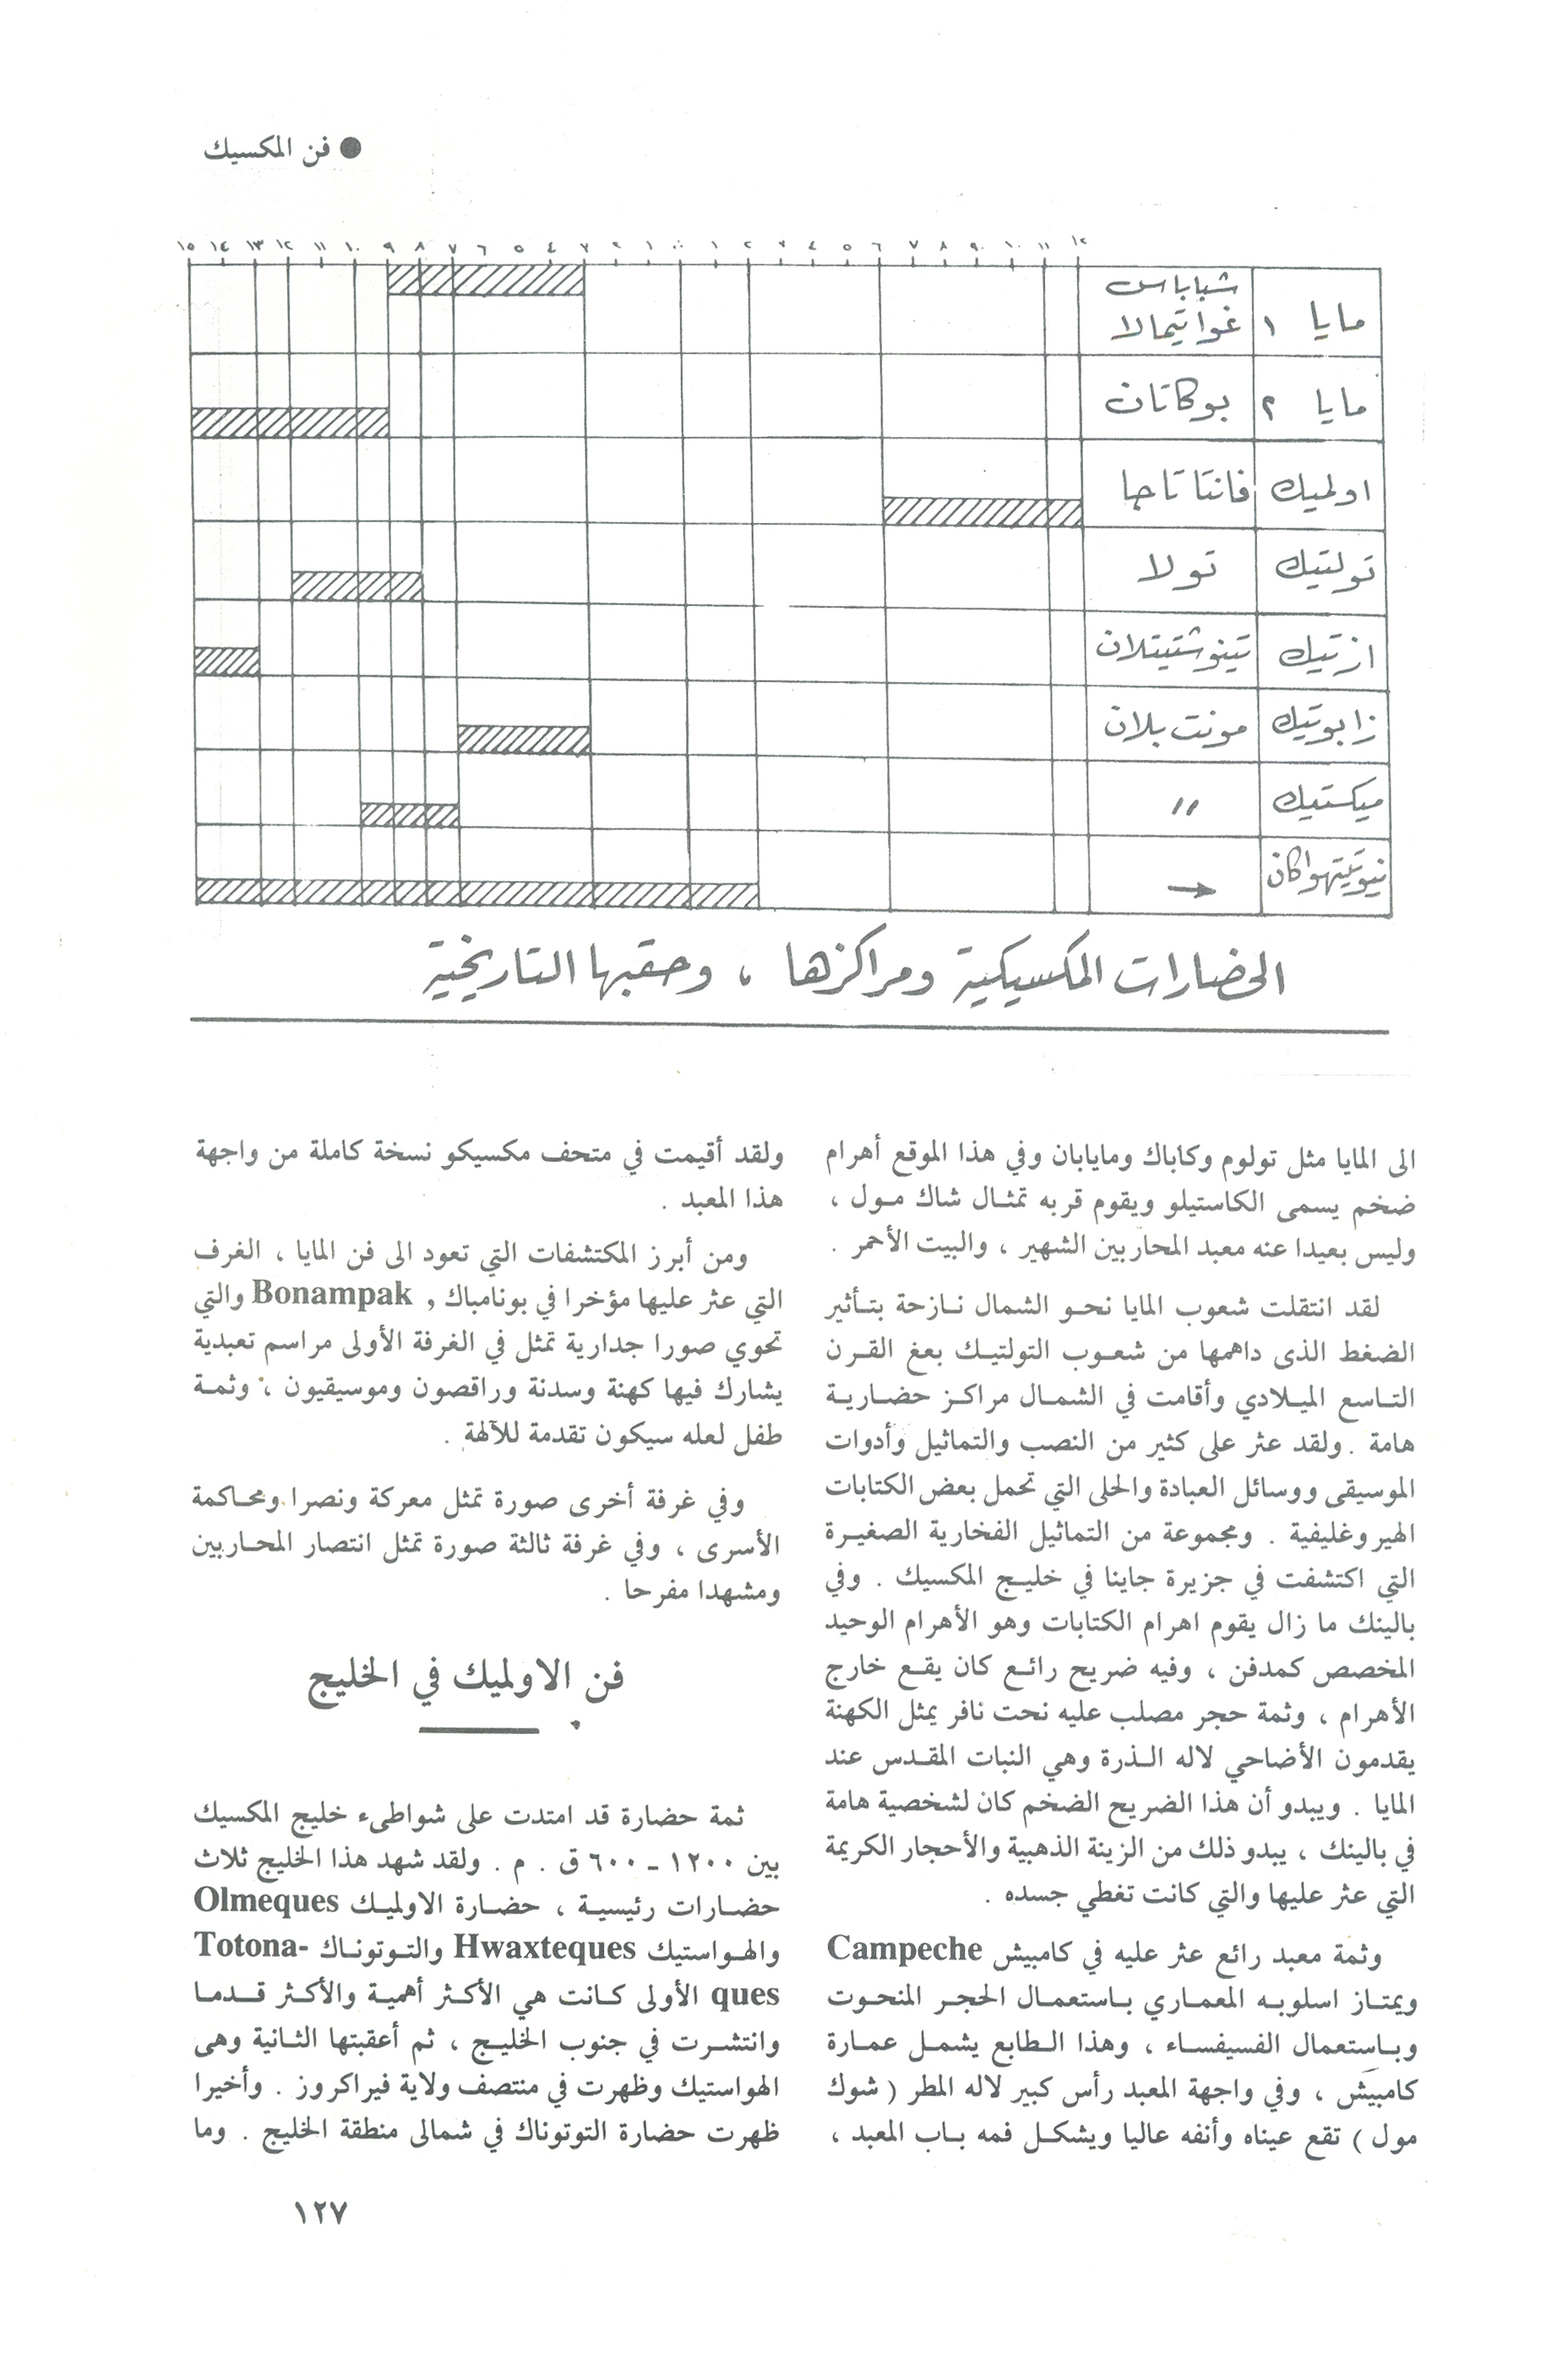 ● فن المكسيك
١٥ ١٤ ١٣ ١٢ ١١ ١٠ ٩ ٨ ٧ ٦ ٥ ٤ ٣ ٢ ١ ٠٠ ١ ٢ ٣ ٤ ٥ ٦ ٧ ٨ ٩ ١٠ ١١ ١٢
مايا ١ شباباس غواتيمالا
مايا ٢ بوكاتان
اولميك فانتا تاجا
تولتيك تولا
ازتيك تينوشتيتلان
زابوتيك مونت بلان
ميكستيك "
الحضارات المكسيكية ومراكزها ، وحقبها التاريخية
الى المايا مثل تولوم وكاباك ومايابان وفي هذا الموقع أهرام
ضخم يسمى الكاستيلو ويقوم قربه تمثال شاك مول ،
وليس بعيدا عنه معبد المحاربين الشهير ، والبيت الأحمر .
لقد انتقلت شعوب المايا نحو الشمال نازحة بتأثير
الضغط الذى داهمها من شعوب التولتيك بعغ القرن
التاسع الميلادي وأقامت في الشمال مراكز حضارية
هامة . ولقد عثر على كثير من النصب والتماثيل وأدوات
الموسيقى ووسائل العبادة والحلى التي تحمل بعض الكتابات
الهيروغليفية . ومجموعة من التماثيل الفخارية الصغيرة
التي اكتشفت في جزيرة جاينا في خليج المكسيك . وفي
بالينك ما زال يقوم اهرام الكتابات وهو الأهرام الوحيد
المخصص كمدفن ، وفيه ضريح رائع كان يقع خارج
الأهرام ، وثمة حجر مصلب عليه نحت نافر يمثل الكهنة
يقدمون الأضاحي لاله الذرة وهي النبات المقدس عند
المايا . ويبدو أن هذا الضريح الضخم كان لشخصية هامة
في بالينك ، يبدو ذلك من الزينة الذهبية والأحجار الكريمة
التي عثر عليها والتي كانت تغطي جسده .
وثمة معبد رائع عثر عليه في كامبيش Campeche
ويمتاز اسلوبه المعماري باستعمال الحجر المنحوت
وباستعمال الفسيفساء ، وهذا الطابع يشمل عمارة
كامبيش ، وفي واجهة المعبد رأس كبير لاله المطر ( شوك
مول ) تقع عيناه وأنفه عاليا ويشكل فمه باب المعبد ،
ولقد أقيمت في متحف مكسيكو نسخة كاملة من واجهة
هذا المعبد .
ومن أبرز المكتشفات التي تعود الى فن المايا ، الغرف
التي عثر عليها مؤخرا في بونامباك , Bonampak والتي
تحوي صورا جدارية تمثل في الغرفة الأولى مراسم تعبدية
يشارك فيها كهنة وسدنة وراقصون وموسيقيون ، وثمة
طفل لعله سيكون تقدمة للآلهة .
وفي غرفة أخرى صورة تمثل معركة ونصرا ومحاكمة
الأسرى ، وفي غرفة ثالثة صورة تمثل انتصار المحاربين
ومشهدا مفرحا .
فن الاولميك في الخليج
ثمة حضارة قد امتدت على شواطىء خليج المكسيك
بين ١٢٠٠ - ٦٠٠ ق . م . ولقد شهد هذا الخليج ثلاث
حضارات رئيسية ، حضارة الاولميك Olmeques
والهواستيك Hwaxteques والتوتوناك Totona-
ques الأولى كانت هي الأكثر أهمية والأكثر قدما
وانتشرت في جنوب الخليج ، ثم أعقبتها الثانية وهى
الهواستيك وظهرت في منتصف ولاية فيراكروز . وأخيرا
ظهرت حضارة التوتوناك في شمالى منطقة الخليج . وما
١٢٧